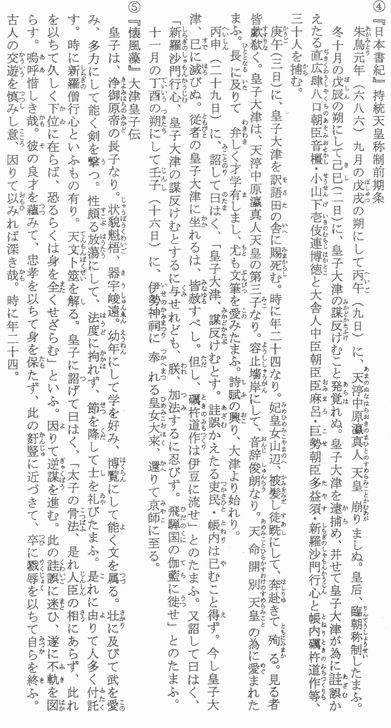 ④『日本書紀』持統天皇称制前期条
朱鳥元年（六八六）九月の戊戌の朔にして丙午（九日）に、天渟中原瀛真人天皇崩りましぬ。皇后、臨朝称制したまふ。
冬十月の戊辰の朔にして己巳（二日）に、皇子大津の謀反けむこと発覚れぬ。皇子大津を逮捕め、并せて皇子大津が為に詿誤か
えたる直広肆八口朝臣音橿・小山下壱伎連博徳と大舎人中臣朝臣臣麻呂・巨勢朝臣多益須・新羅沙門行心と帳内礪杵道作等、
三十人を捕む。
庚午（三日）に、皇子大津を訳語田の舎に賜死む。時に年二十四なり。妃皇女山辺、被髪し徒跣にして、奔赴きて殉る。見る者
皆歔欷く。皇子大津は、天渟中原瀛真人天皇の第三子なり。容止墻岸にして、音辞俊朗なり。天命開別天皇の為に愛まれた
まふ。長に及りて弁しく才学有しまし、尤も文筆を愛みたまふ。詩賦の興り、大津より始れり。
丙申（二十九日）に、詔して曰はく、「皇子大津、謀反けむとす。詿誤かえたる吏民・帳内は已むこと得ず。今し皇子大
津、已に滅びぬ。従者の皇子大津に坐れるは、皆赦すべし。但し、礪杵道作は伊豆に流せ」とのたまふ。又詔して曰はく、
「新羅沙門行心、皇子大津の謀反けむとするに与せれども、朕、加法するに忍びず。飛騨国の伽藍に徙せ」とのたまふ。
十一月の丁酉の朔にして壬子（十六日）に、伊勢神祠に奉れる皇女大来、還りて京師に至る。
⑤『懐風藻』大津皇子伝
皇子は、浄御原帝の長子なり。状貌魁梧、器宇峻遠。幼年にして学を好み、博覧にして能く文を属る。壮に及びて武を愛
み、多力にして能く剣を撃つ。性頗る放蕩にして、法度に拘れず、節を降して士を礼びたまふ。是れに由りて人多く付託
す。時に新羅僧行心といふもの有り、天文卜筮を解る。皇子に詔げて曰はく、「太子の骨法、是れ人臣の相にあらず、此れ
を以ちて久しく下位に在らば、恐るらくは身を全くせざらむ」といふ。因りて逆謀を進む。此の詿誤に迷ひ、遂に不軌を図
らす。嗚呼惜しき哉。彼の良才を蘊みて、忠孝を以ちて身を保たず、此の奸豎に近づきて、卒に戮辱を以ちて自らを終ふ。
古人の交遊を慎みし意、因りて以みれば深き哉。時に年二十四。